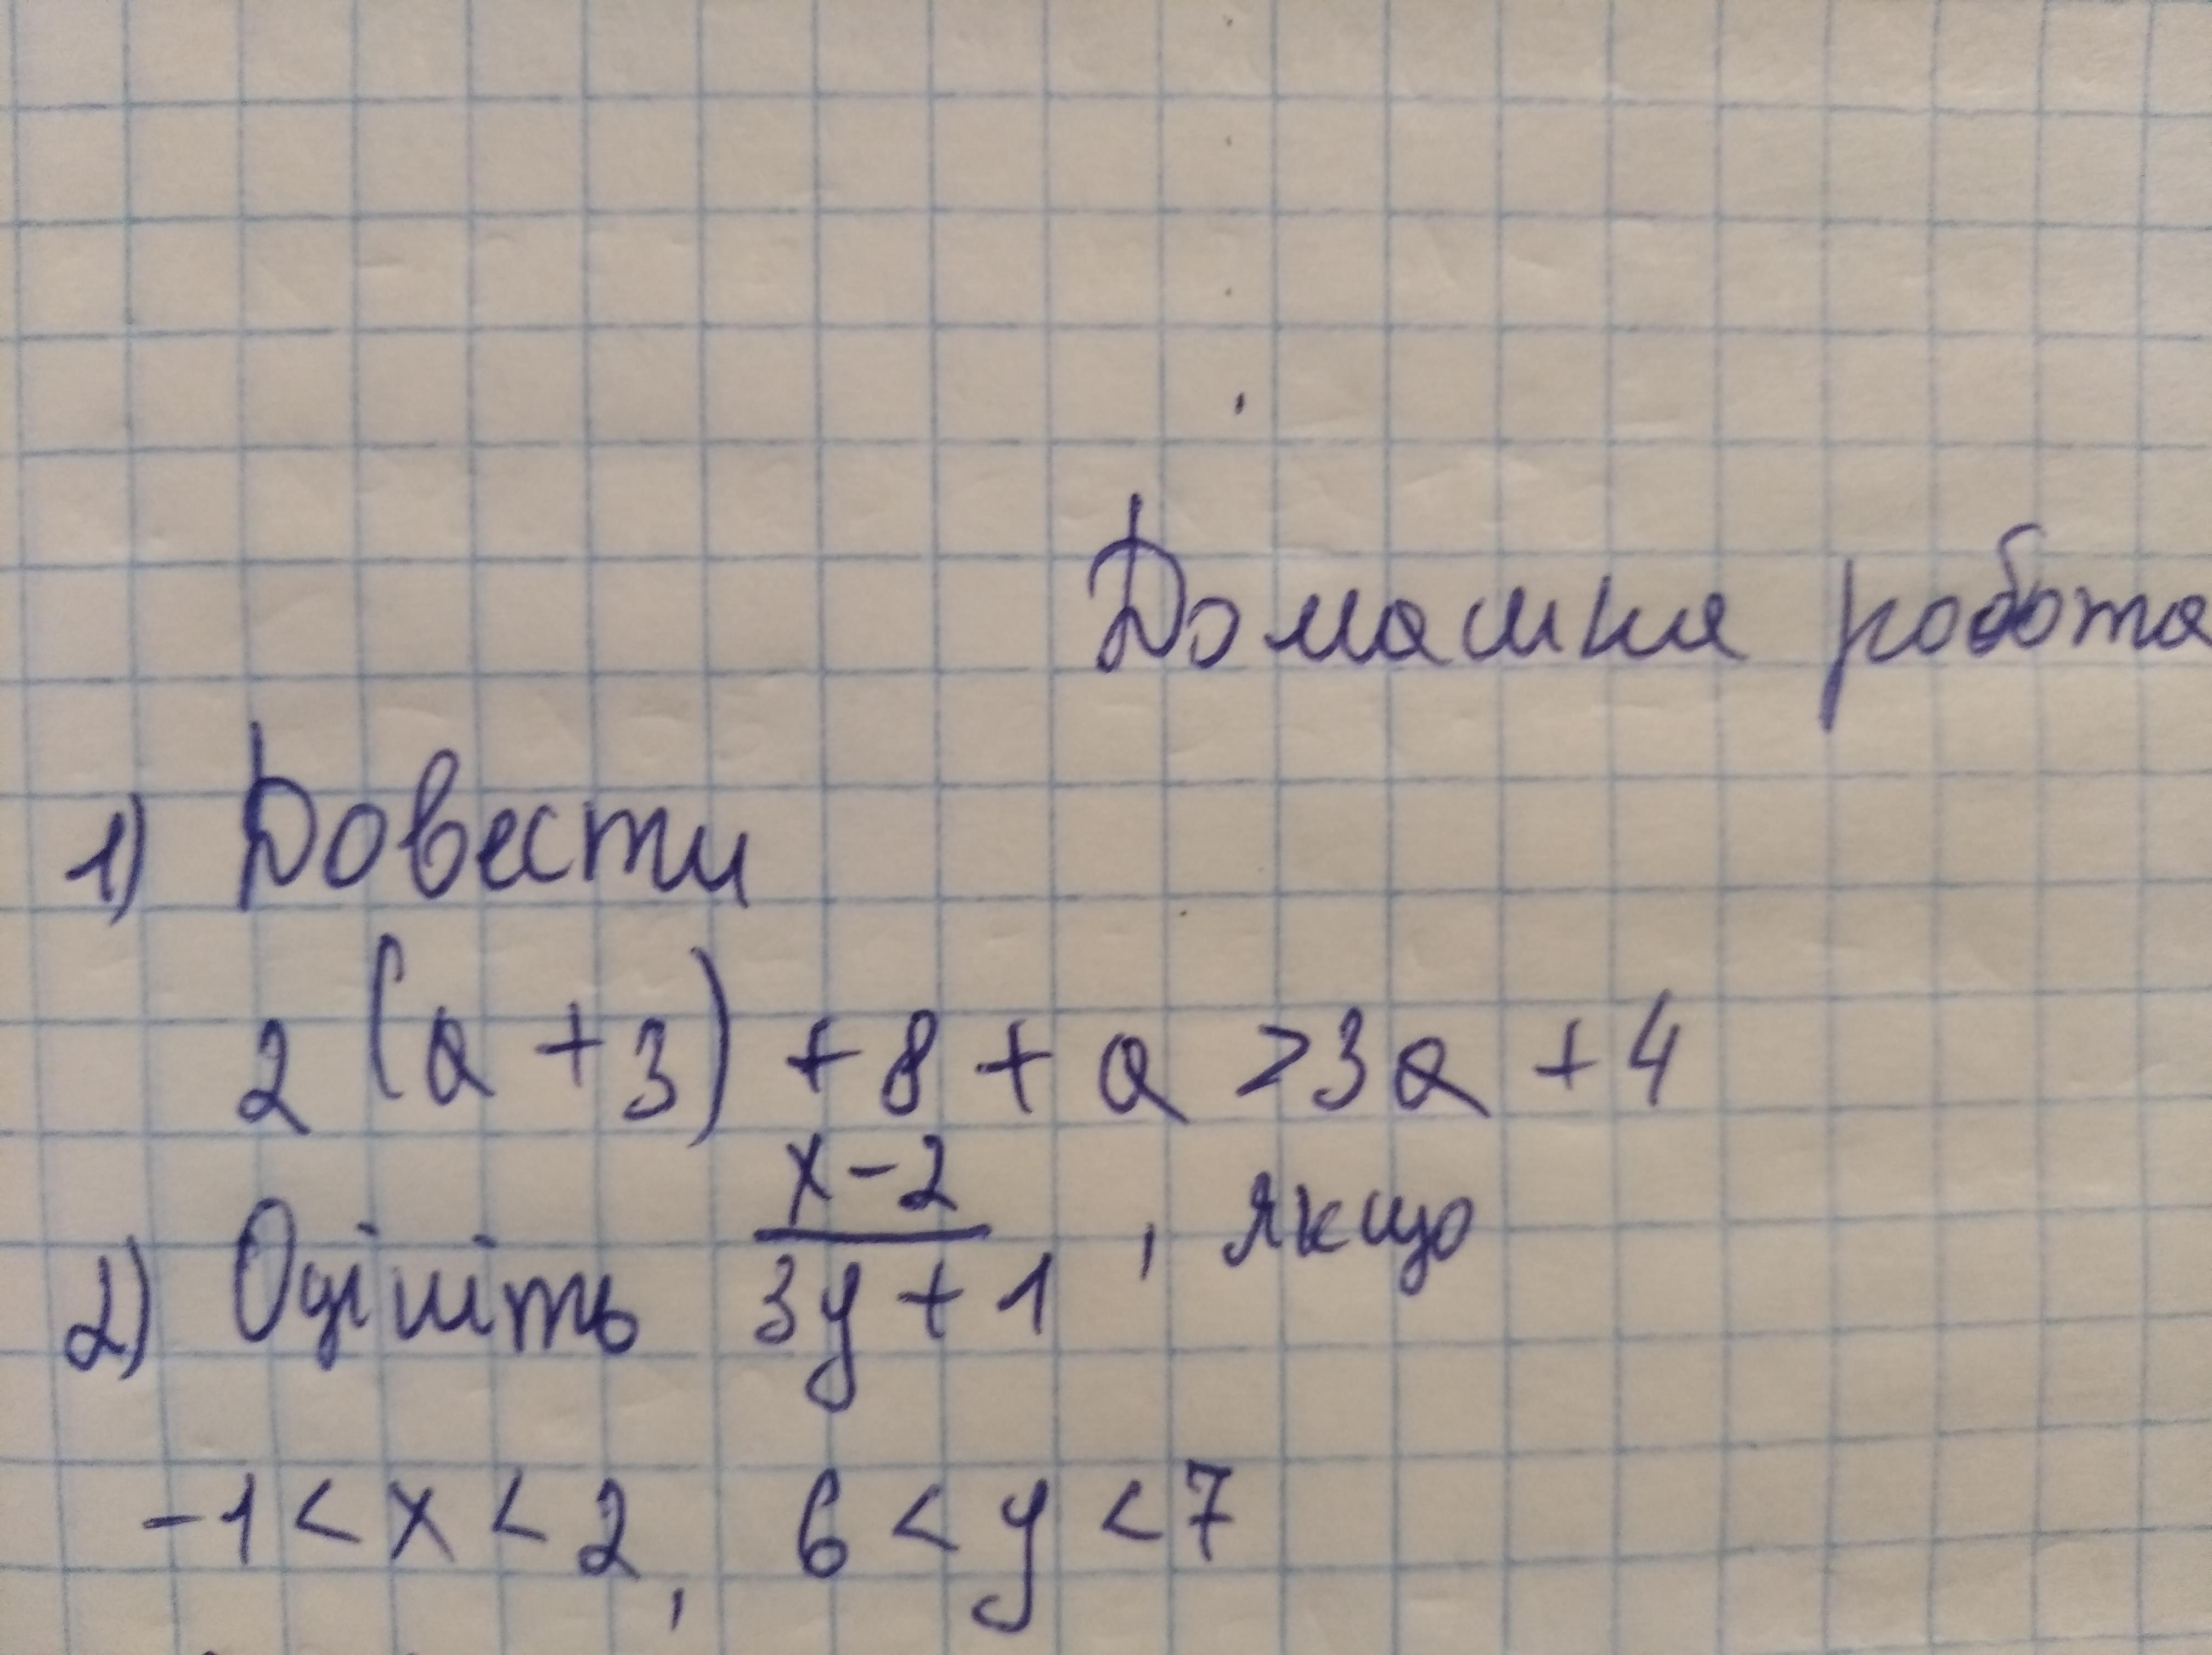 Домашня робота
1) Довести
2(a+3)+8+a>3a+4
2) Оцініть \frac{x-2}{3y+1}, якщо
-1<x<2, 6<y<7